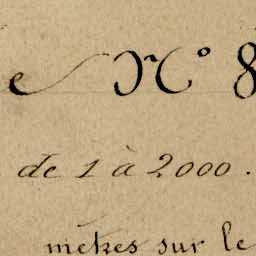 e N° 8
de 1 à 2000.
mètres sur le